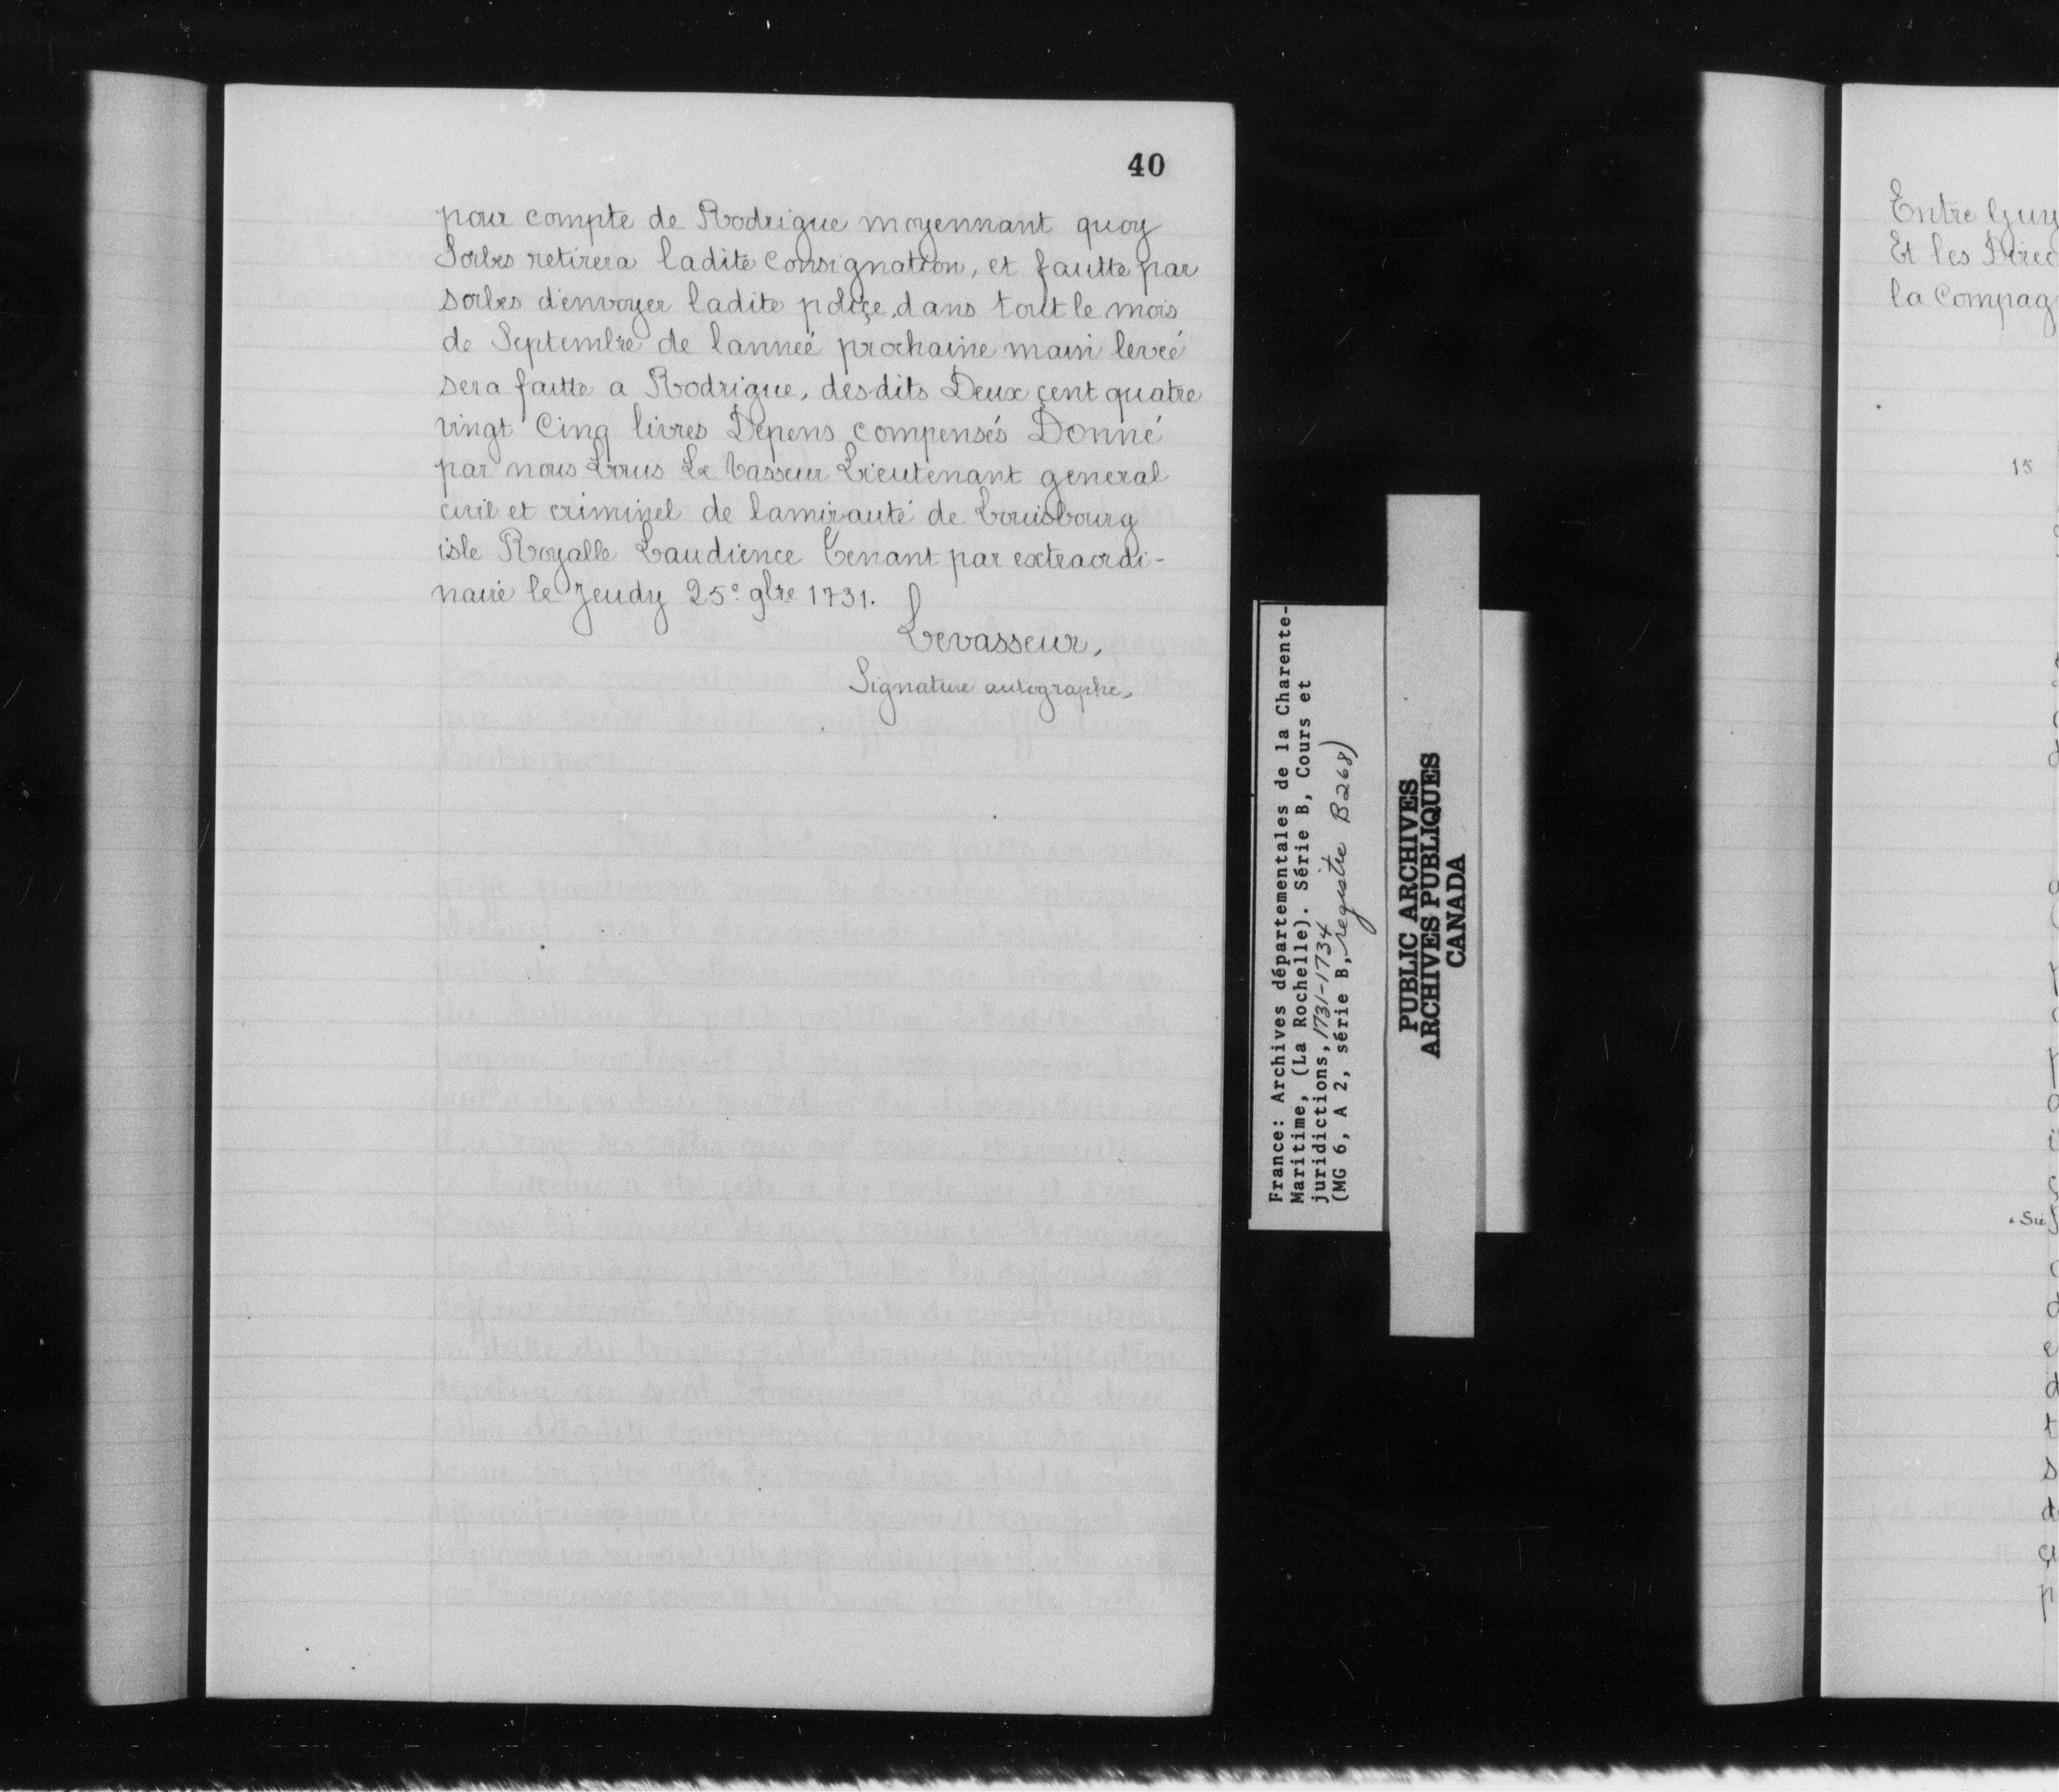 40
pour compte de Rodrigue moyennant quoy
Sorbes retirera ladite Consignation, et fautte par
sorbes d'envoyer ladite poliçe, dans tout le mois
de Septembre de lanneé prochaine main leveé
sera faitte a Rodrigue, desdits Deux çent quatre
vingt Cinq livres Dépens compensés Donné
par nous Louis Le Vasseur Lieutenant general
civil et criminel de lamirauté de Louisbourg
isle Royalle Laudience Tenant par extraordi-
naire le Jeudy 25e 9bre 1731.
Levasseur,
Signature autographe.
France: Archives départementales de la Charente-
Maritime, (La Rochelle). Série B, Cours et
juridictions, 1731-1734
(MG 6, A 2, série B, registre B268)
PUBLIC ARCHIVES
ARCHIVES PUBLIQUES
CANADA
Entre Guy
Et les Direc
la Compag
15